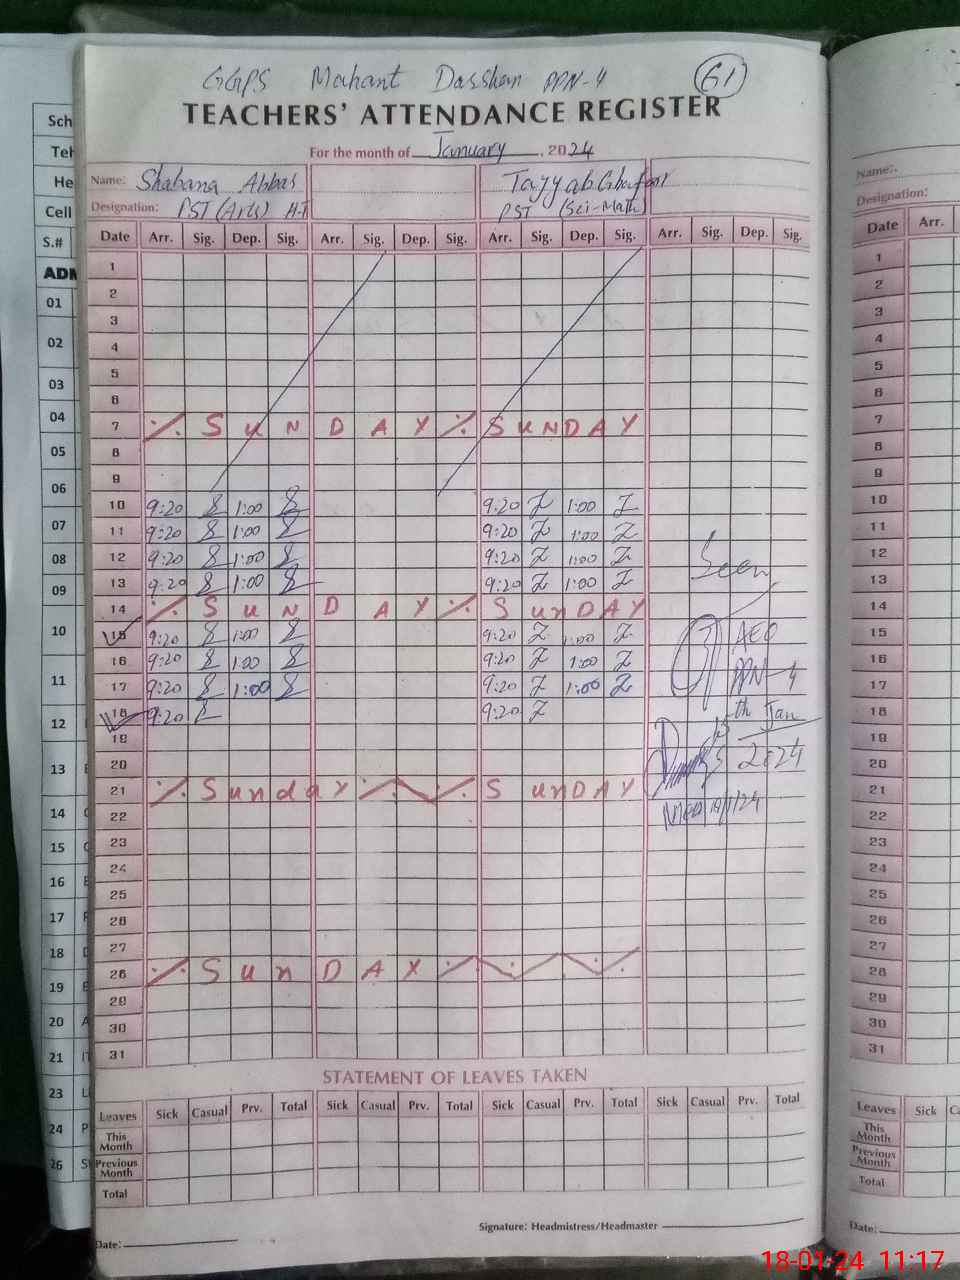 GGPS Mahant Dasshan PPN-4 61
TEACHERS' ATTENDANCE REGISTER
For the month of January, 2024
Name: Shabana Abbas Tayyab Ghafoor
Designation: PST (Arts) H.T PST (Sci-Math)
Date Arr. Sig. Dep. Sig. Arr. Sig. Dep. Sig. Arr. Sig. Dep. Sig. Arr. Sig. Dep. Sig.
1
2
3
4
5
6
7 SUNDAY SUNDAY
8
9
10 9:20 1:00 9:20 1:00
11 9:20 1:00 9:20 1:00
12 9:20 1:00 9:20 1:00
13 9:20 1:00 9:20 1:00
14 SUNDAY SunDAY
15 9:20 1:00 9:20 1:00
16 9:20 1:00 9:20 1:00
17 9:20 1:00 9:20 1:00
18 9:20 9:20
19
20
21 Sunday SunDAY
22
23
24
25
26
27
28 SunDAY
29
30
31
Seen
AEO
PPN-4
15th Jan
2024
STATEMENT OF LEAVES TAKEN
Leaves Sick Casual Prv. Total Sick Casual Prv. Total Sick Casual Prv. Total Sick Casual Prv. Total
This Month
Previous Month
Total
Signature: Headmistress/Headmaster
Date:
Sch
Teh
He
Cell
S.#
ADM
01
02
03
04
05
06
07
08
09
10
11
12
13
14
15
16
17
18
19
20
21
23
24
26
Name:
Designation:
Date Arr.
1
2
3
4
5
6
7
8
9
10
11
12
13
14
15
16
17
18
19
20
21
22
23
24
25
26
27
28
29
30
31
Leaves Sick
This Month
Previous Month
Total
Date:
18-01-24 11:17